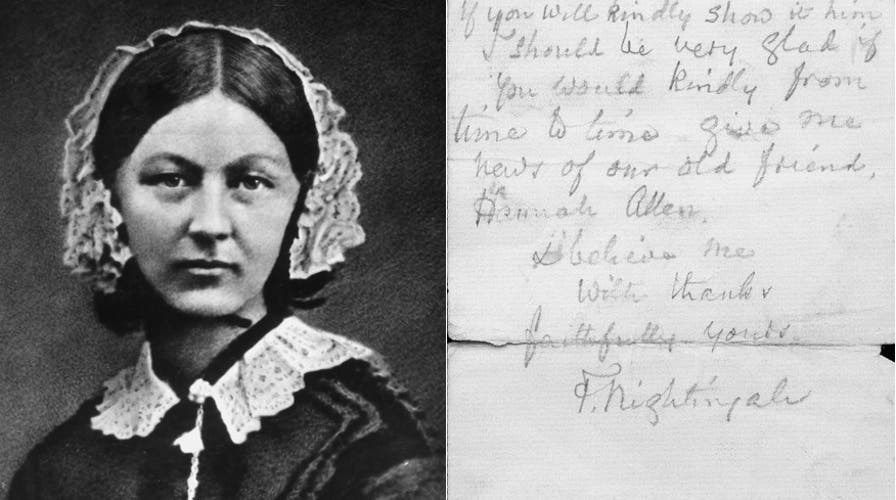 If you will kindly show it him
I should be very glad if
you would kindly from
time to time give me
news of our old friend,
Hannah Allen.
I believe me
With thanks
faithfully yours
F. Nightingale